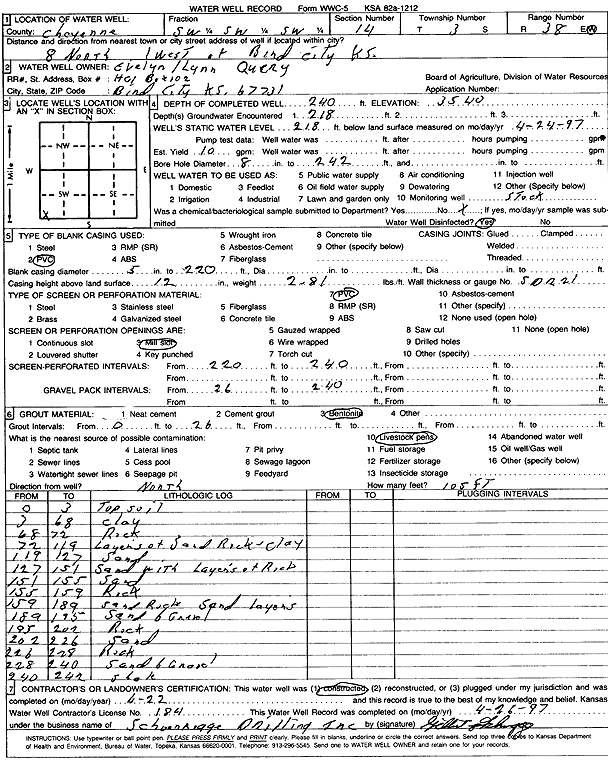 WATER WELL RECORD Form WWC-5 KSA 82a-1212
1 LOCATION OF WATER WELL: Fraction Section Number Township Number Range Number
County: Cheyenne SW ¼ SW ¼ SW ¼ 14 T 3 S R 38 E/W
Distance and direction from nearest town or city street address of well if located within city?
8 North 1 West of Bird City KS.
2 WATER WELL OWNER: Evelyn/Lynn Query
RR#, St. Address, Box # : HC1 Box 102 Board of Agriculture, Division of Water Resources
City, State, ZIP Code : Bird City KS. 67731 Application Number:
3 LOCATE WELL'S LOCATION WITH AN "X" IN SECTION BOX:
N
NW NE
W E
SW SE
X
S
1 Mile
4 DEPTH OF COMPLETED WELL 240 ft. ELEVATION: 3540
Depth(s) Groundwater Encountered 1. 218 ft. 2. ft. 3. ft.
WELL'S STATIC WATER LEVEL 218 ft. below land surface measured on mo/day/yr 4-24-97
Pump test data: Well water was ft. after hours pumping gpm
Est. Yield 10 gpm: Well water was ft. after hours pumping gpm
Bore Hole Diameter 8 in. to 242 ft., and in. to ft.
WELL WATER TO BE USED AS: 5 Public water supply 8 Air conditioning 11 Injection well
1 Domestic 3 Feedlot 6 Oil field water supply 9 Dewatering 12 Other (Specify below)
2 Irrigation 4 Industrial 7 Lawn and garden only 10 Monitoring well Stock
Was a chemical/bacteriological sample submitted to Department? Yes No X ; If yes, mo/day/yr sample was submitted
Water Well Disinfected? Yes No
5 TYPE OF BLANK CASING USED: 5 Wrought iron 8 Concrete tile CASING JOINTS: Glued Clamped
1 Steel 3 RMP (SR) 6 Asbestos-Cement 9 Other (specify below) Welded
2 PVC 4 ABS 7 Fiberglass Threaded
Blank casing diameter 5 in. to 220 ft., Dia in. to ft., Dia in. to ft.
Casing height above land surface 12 in., weight 2.81 lbs./ft. Wall thickness or gauge No. SDR 21
TYPE OF SCREEN OR PERFORATION MATERIAL: 7 PVC 10 Asbestos-cement
1 Steel 3 Stainless steel 5 Fiberglass 8 RMP (SR) 11 Other (specify)
2 Brass 4 Galvanized steel 6 Concrete tile 9 ABS 12 None used (open hole)
SCREEN OR PERFORATION OPENINGS ARE: 5 Gauzed wrapped 8 Saw cut 11 None (open hole)
1 Continuous slot 3 Mill slot 6 Wire wrapped 9 Drilled holes
2 Louvered shutter 4 Key punched 7 Torch cut 10 Other (specify)
SCREEN-PERFORATED INTERVALS: From 220 ft. to 240 ft., From ft. to ft.
From ft. to ft., From ft. to ft.
GRAVEL PACK INTERVALS: From 26 ft. to 240 ft., From ft. to ft.
From ft. to ft., From ft. to ft.
6 GROUT MATERIAL: 1 Neat cement 2 Cement grout 3 Bentonite 4 Other
Grout Intervals: From 0 ft. to 26 ft., From ft. to ft., From ft. to ft.
What is the nearest source of possible contamination: 10 Livestock pens 14 Abandoned water well
1 Septic tank 4 Lateral lines 7 Pit privy 11 Fuel storage 15 Oil well/Gas well
2 Sewer lines 5 Cess pool 8 Sewage lagoon 12 Fertilizer storage 16 Other (specify below)
3 Watertight sewer lines 6 Seepage pit 9 Feedyard 13 Insecticide storage
Direction from well? North How many feet? 105 FT
FROM TO LITHOLOGIC LOG FROM TO PLUGGING INTERVALS
0 3 Top soil
3 68 Clay
68 72 Rock
72 119 Layers of Sand Rock & Clay
119 127 Sand
127 151 Sand with Layers of Rock
151 155 Sand
155 159 Rock
159 189 Sand Rock Sand layers
189 195 Sand & Gravel
195 202 Rock
202 226 Sand
226 228 Rock
228 240 Sand & Gravel
240 242 Shale
7 CONTRACTOR'S OR LANDOWNER'S CERTIFICATION: This water well was (1) constructed, (2) reconstructed, or (3) plugged under my jurisdiction and was
completed on (mo/day/year) 4-22 and this record is true to the best of my knowledge and belief. Kansas
Water Well Contractor's License No. 184 This Water Well Record was completed on (mo/day/yr) 4-26-97
under the business name of Drilling Inc by (signature)
INSTRUCTIONS: Use typewriter or ball point pen. PLEASE PRESS FIRMLY and PRINT clearly. Please fill in blanks, underline or circle the correct answers. Send top three copies to Kansas Department
of Health and Environment, Bureau of Water, Topeka, Kansas 66620-0001. Telephone: 913-296-5545. Send one to WATER WELL OWNER and retain one for your records.